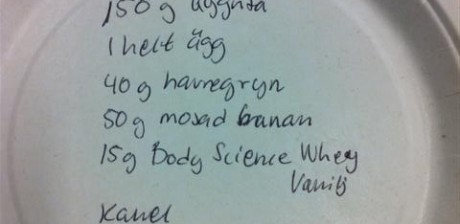 150 g äggvita
1 helt ägg
40 g havregryn
50 g mosad banan
15 g Body Science Whey
Vanilj
Kanel